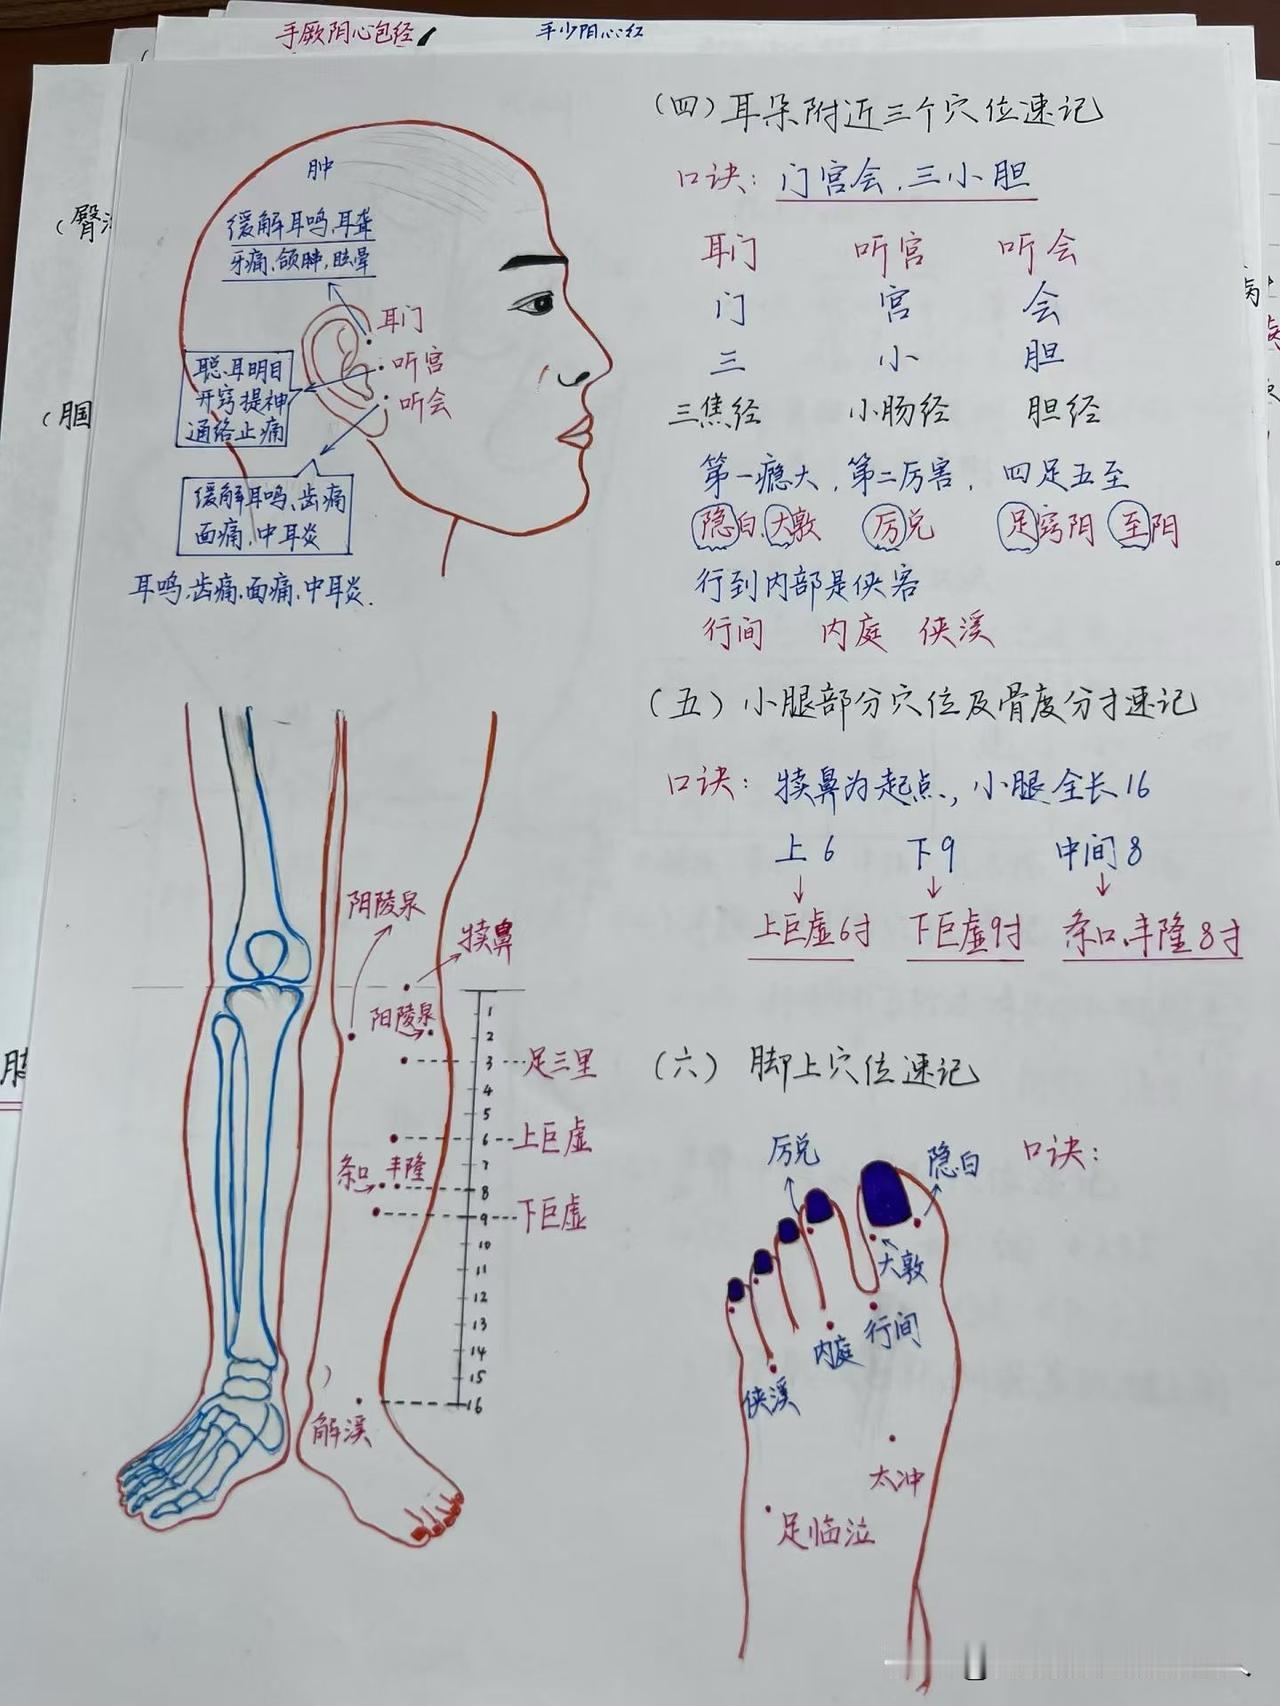 手厥阴心包经
手少阴心经
（臀
（腘
肿
缓解耳鸣、耳聋
牙痛、颌肿，眩晕
耳门
听宫
听会
聪耳明目
开窍提神
通络止痛
缓解耳鸣、齿痛
面痛，中耳炎
耳鸣，齿痛，面痛，中耳炎．
（四）耳朵附近三个穴位速记
口诀：门宫会，三小胆
耳门 听宫 听会
门 宫 会
三 小 胆
三焦经 小肠经 胆经
第一瘾大，第二厉害，四足五至
隐白、大敦 厉兑 足窍阴 至阴
行到内部是侠客
行间 内庭 侠溪
（五）小腿部分穴位及骨度分寸速记
口诀：犊鼻为起点，小腿全长16
上6 下9 中间8
上巨虚6寸 下巨虚9寸 条口、丰隆8寸
阳陵泉
犊鼻
阳陵泉
1
2
3 足三里
4
5
6 上巨虚
7
条口 丰隆
8
9 下巨虚
10
11
12
13
14
15
16
解溪
（六）脚上穴位速记
口诀：
厉兑
隐白
大敦
行间
内庭
侠溪
太冲
足临泣